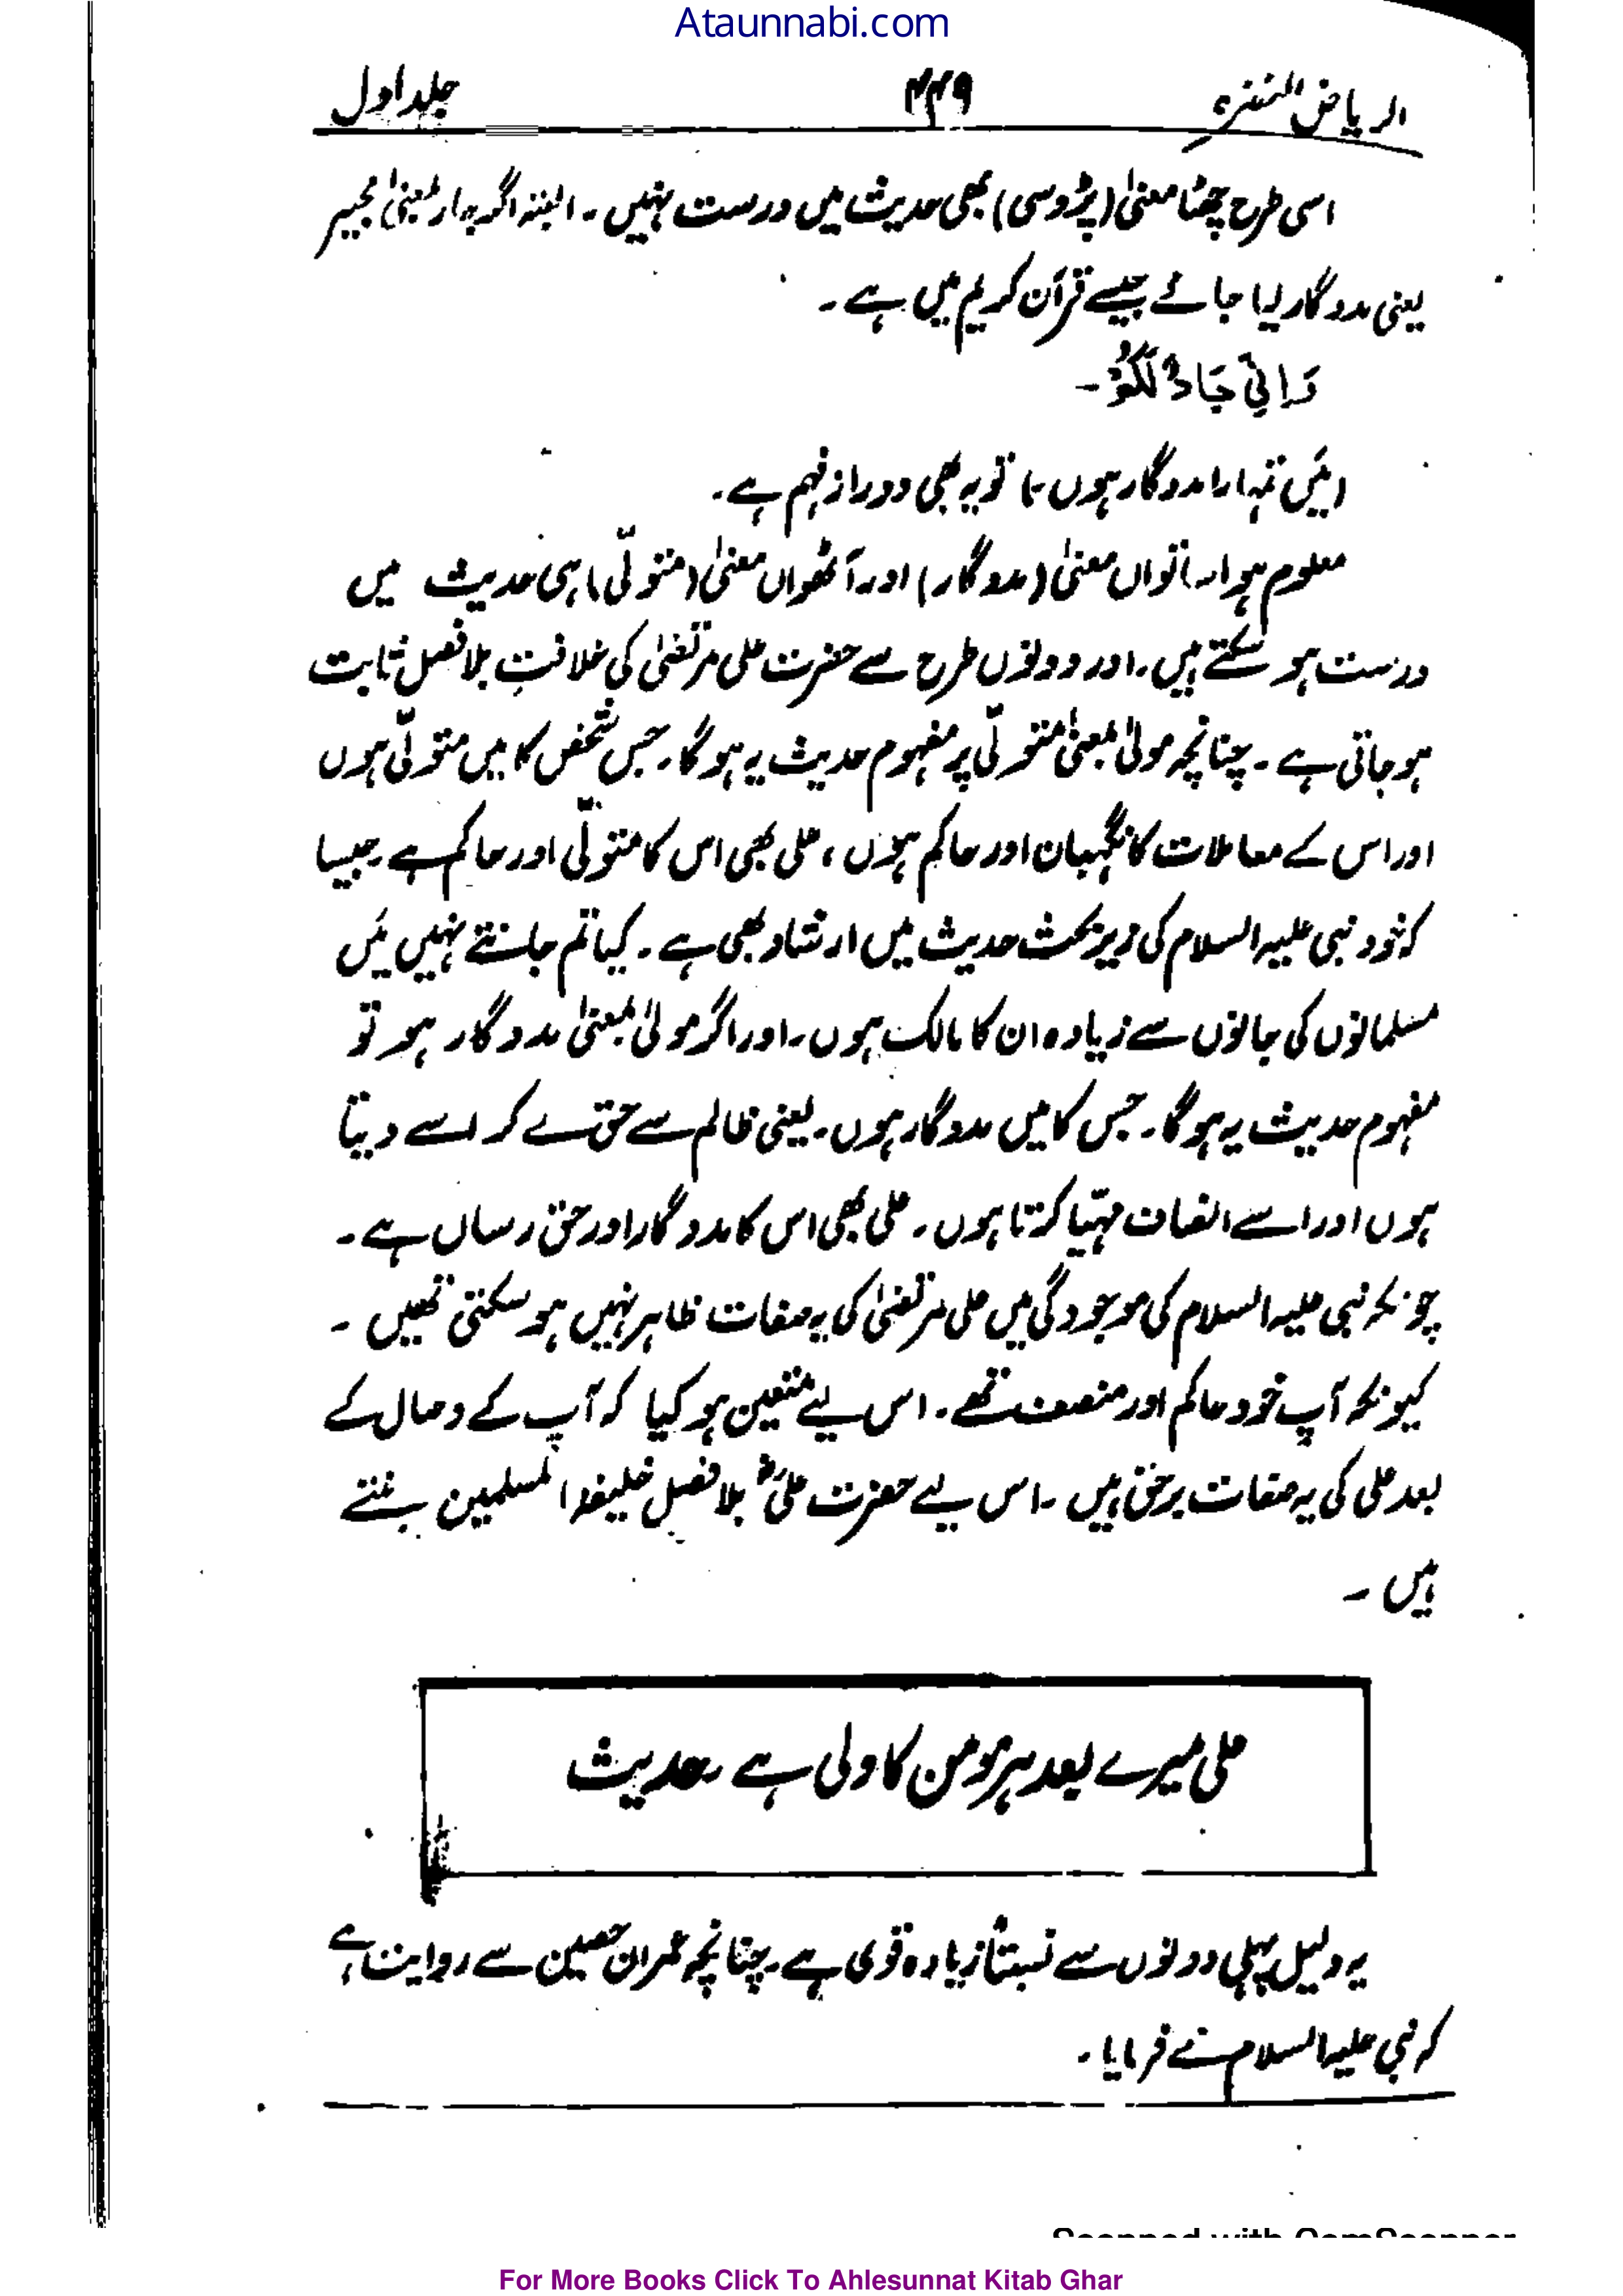 Ataunnabi.com
الریاض النضرہ ۴۴۹ جلد اول
اسی طرح چھٹا معنیٰ (پڑوسی) بھی حدیث میں درست نہیں۔ البتہ اگر جار بمعنیٰ مجیر
یعنی مددگار لیا جائے جیسے قرآن کریم میں ہے۔
وَاِنِّیْ جَارٌ لَّکُمْ۔
(میَں تمہارا مددگار ہوں) تو یہ بھی دور از فہم ہے۔
معلوم ہوا ساتواں معنیٰ (مددگار) اور آٹھواں معنیٰ (متولّی) ہی حدیث میں
درست ہو سکتے ہیں۔ اور دونوں طرح سے حضرت علی مرتضیٰ کی خلافتِ بلا فصل ثابت
ہو جاتی ہے۔ چنانچہ مولیٰ بمعنیٰ متولّی پر مفہوم حدیث یہ ہوگا۔ جس شخص کا میں متولّی ہوں
اور اس کے معاملات کا نگہبان اور حاکم ہوں، علی بھی اس کا متولّی اور حاکم ہے۔ جیسا
کہ خود نبی علیہ السلام کی زیر بحث حدیث میں ارشاد بھی ہے۔ کیا تم جانتے نہیں میَں
مسلمانوں کی جانوں سے زیادہ ان کا مالک ہوں۔ اور اگر مولیٰ بمعنیٰ مددگار ہو تو
مفہوم حدیث یہ ہوگا۔ جس کا میں مددگار ہوں۔ یعنی ظالم سے حق لے کر اسے دیتا
ہوں اور اسے انصاف مہیّا کرتا ہوں۔ علی بھی اس کا مددگار اور حق رساں ہے۔
چونکہ نبی علیہ السلام کی موجودگی میں علی مرتضیٰ کی یہ صفات ظاہر نہیں ہو سکتی تھیں۔
کیونکہ آپ خود حاکم اور منصف تھے۔ اس لیے متعین ہو گیا کہ آپ کے وصال کے
بعد علی کی یہ صفات برحق ہیں۔ اس لیے حضرت علیؓ بلا فصل خلیفۃ المسلمین بنتے
ہیں۔
علی میرے بعد ہر مومن کا ولی ہے۔ حدیث
یہ دلیل پہلی دونوں سے نسبتًا زیادہ قوی ہے۔ چنانچہ عمران حصین سے روایت ہے
کہ نبی علیہ السلام نے فرمایا۔
Scanned with CamScanner
For More Books Click To Ahlesunnat Kitab Ghar